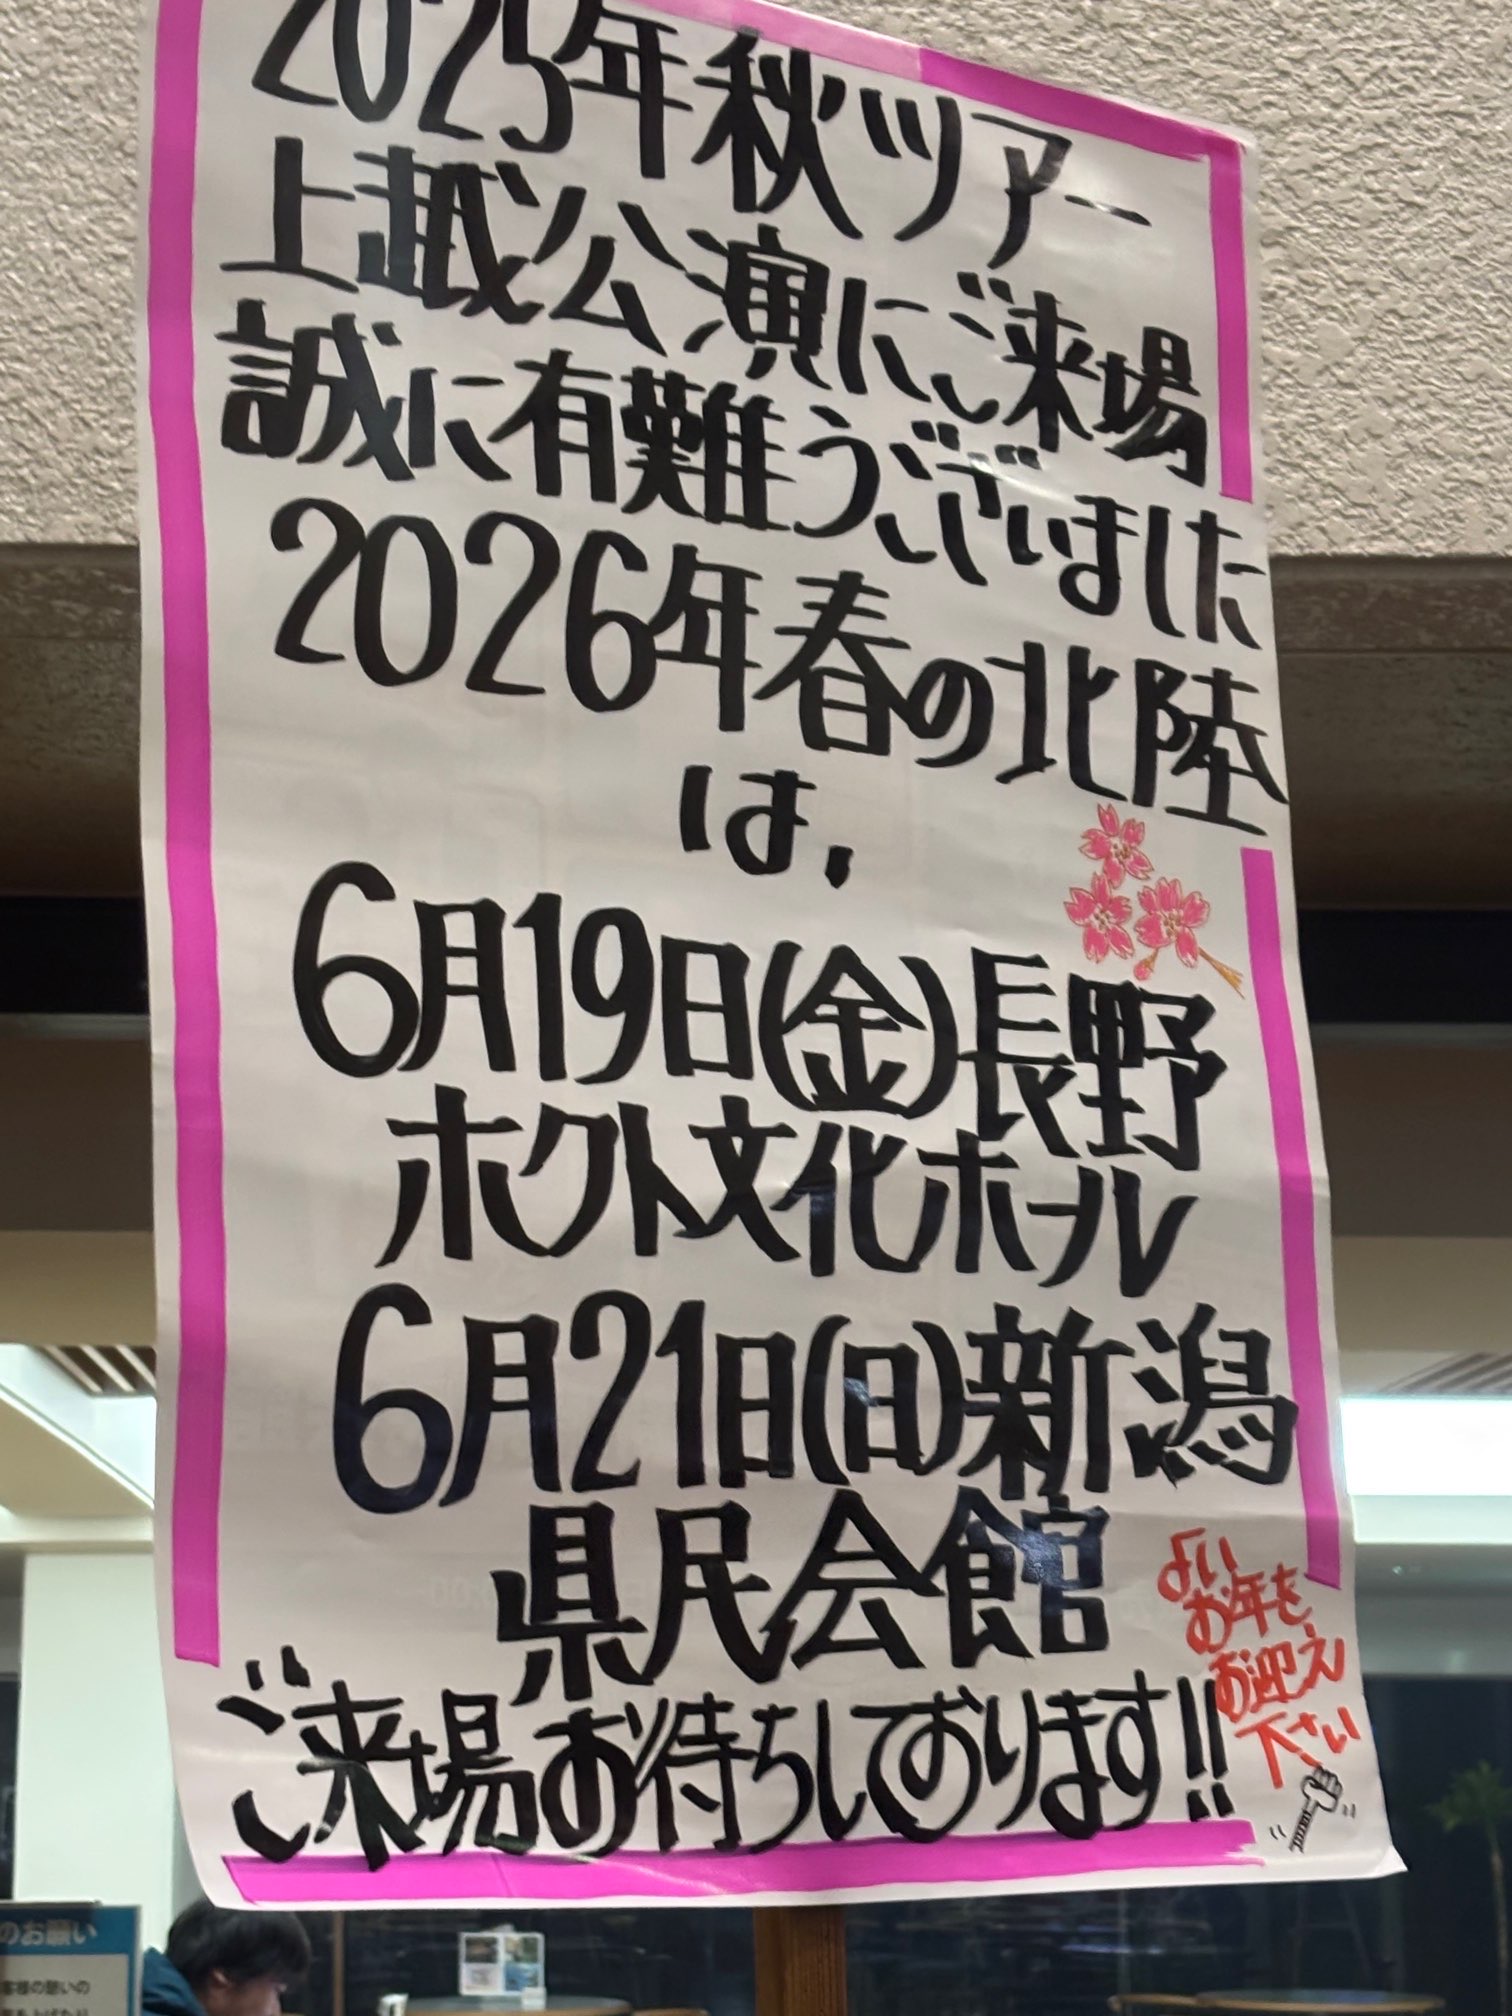 2025年秋ツアー
上越公演にご来場
誠に有難うございました
2026年春の北陸
は、
6月19日(金)長野
ホクト文化ホール
6月21日(日)新潟
県民会館
ご来場お待ちしております!!
よい
お年を
お迎え
下さい
のお願い
客様の憩いの